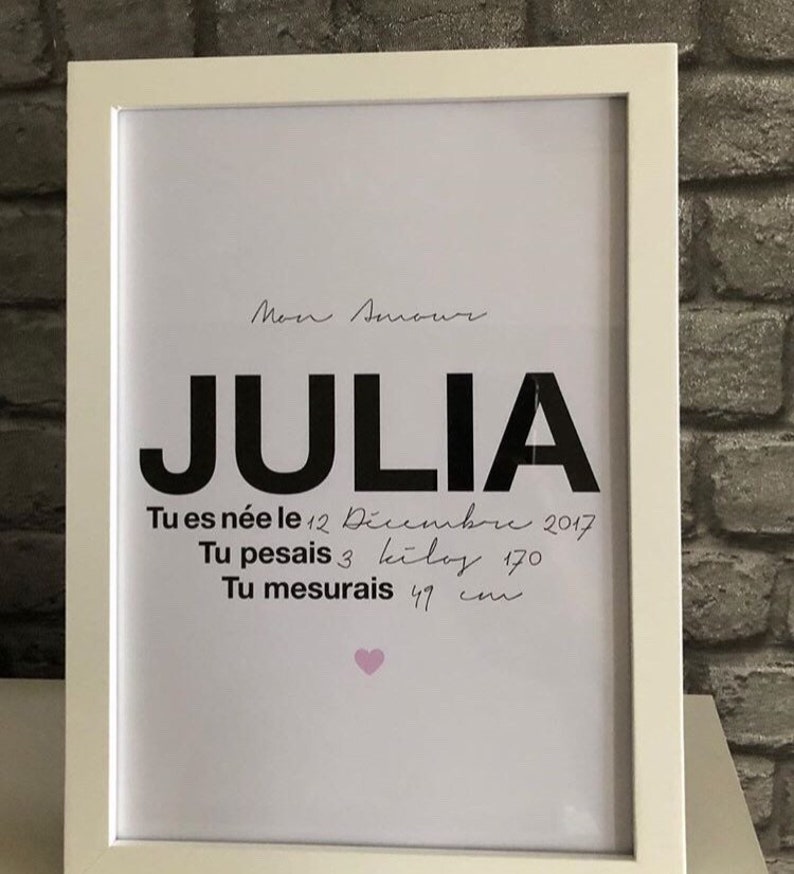 Mon Amour
JULIA
Tu es née le 12 Décembre 2017
Tu pesais 3 kilos 170
Tu mesurais 49 cm